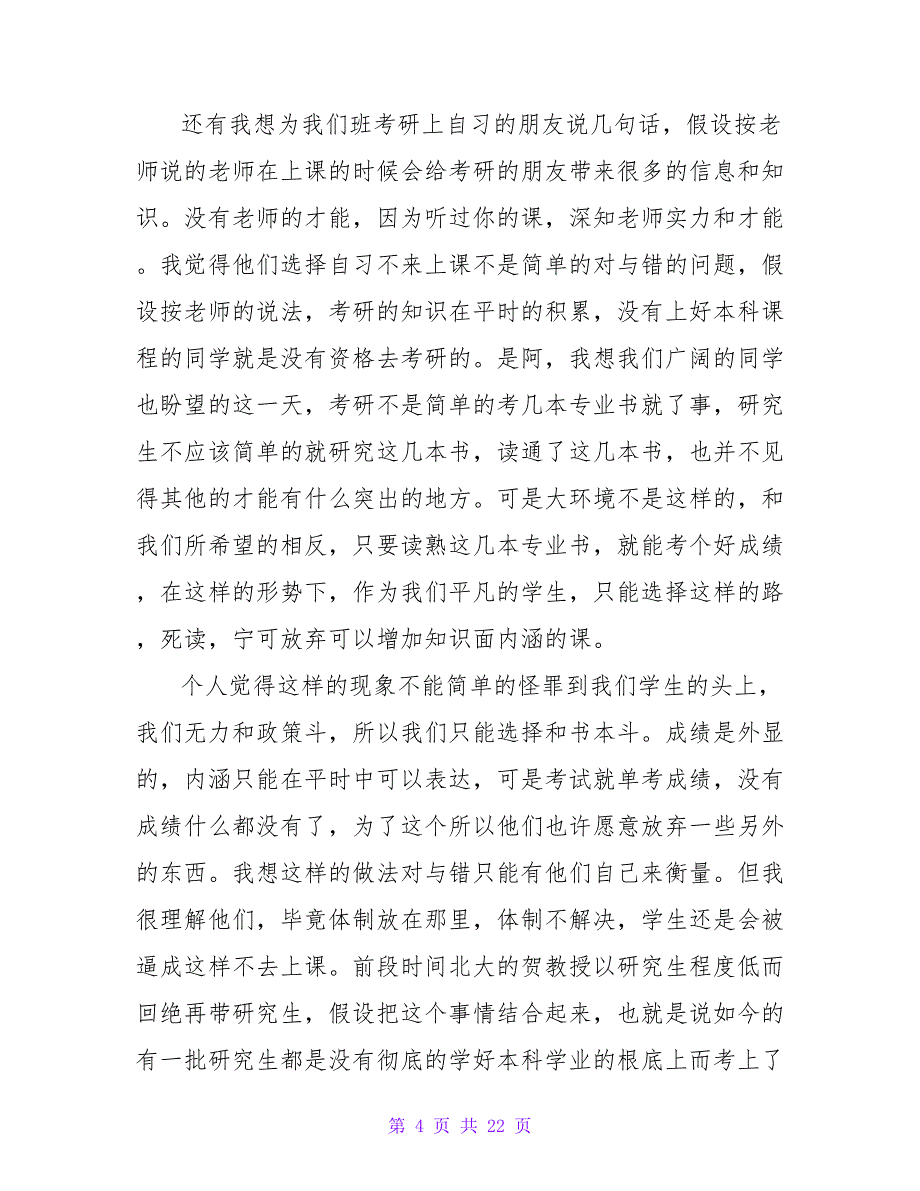 还有我想为我们班考研上自习的朋友说几句话，假设按老
师说的老师在上课的时候会给考研的朋友带来很多的信息和知
识。没有老师的才能，因为听过你的课，深知老师实力和才能
。我觉得他们选择自习不来上课不是简单的对与错的问题，假
设按老师的说法，考研的知识在平时的积累，没有上好本科课
程的同学就是没有资格去考研的。是阿，我想我们广阔的同学
也盼望的这一天，考研不是简单的考几本专业书就了事，研究
生不应该简单的就研究这几本书，读通了这几本书，也并不见
得其他的才能有什么突出的地方。可是大环境不是这样的，和
我们所希望的相反，只要读熟这几本专业书，就能考个好成绩
，在这样的形势下，作为我们平凡的学生，只能选择这样的路
，死读，宁可放弃可以增加知识面内涵的课。
个人觉得这样的现象不能简单的怪罪到我们学生的头上，
我们无力和政策斗，所以我们只能选择和书本斗。成绩是外显
的，内涵只能在平时中可以表达，可是考试就单考成绩，没有
成绩什么都没有了，为了这个所以他们也许愿意放弃一些另外
的东西。我想这样的做法对与错只能有他们自己来衡量。但我
很理解他们，毕竟体制放在那里，体制不解决，学生还是会被
逼成这样不去上课。前段时间北大的贺教授以研究生程度低而
回绝再带研究生，假设把这个事情结合起来，也就是说如今的
有一批研究生都是没有彻底的学好本科学业的根底上而考上了
第 4 页 共 22 页